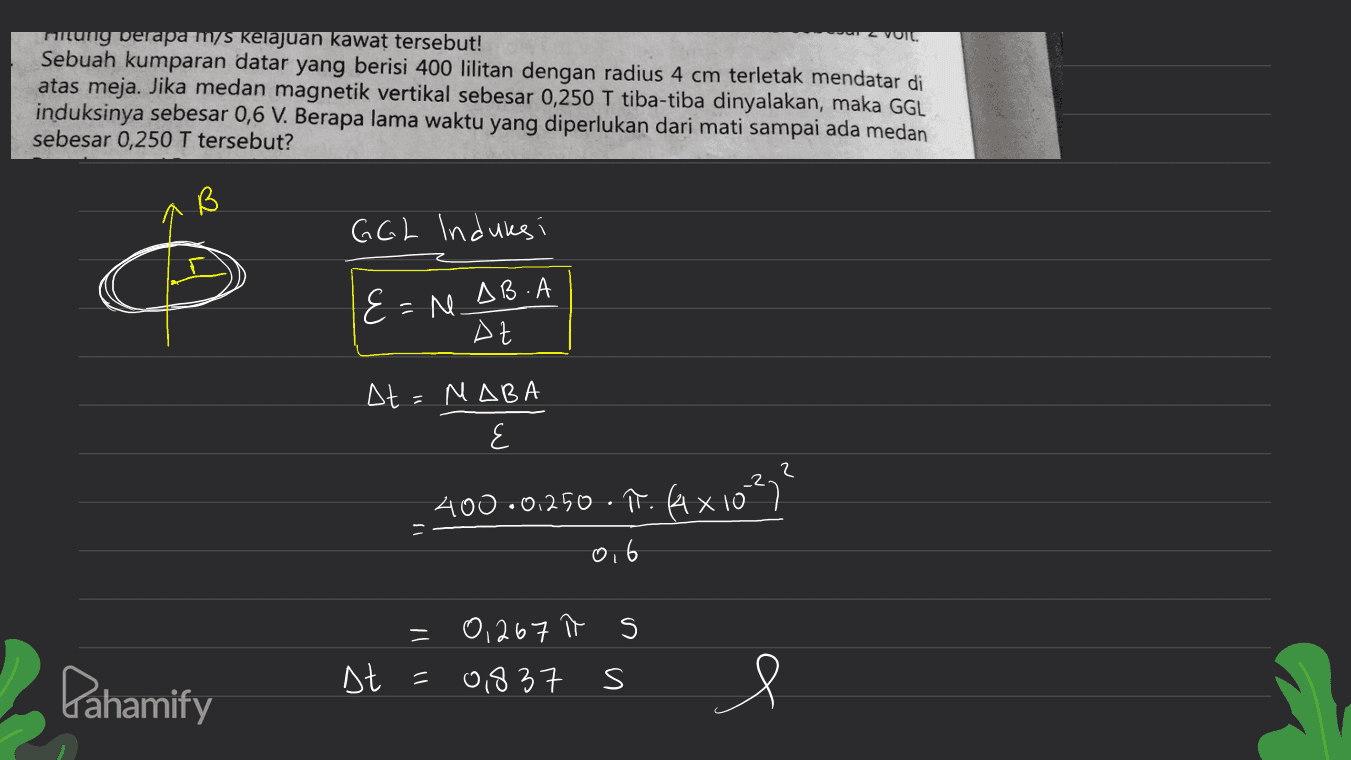 Hitung berapa m/s kelajuan kawat tersebut!
2 volt.
Sebuah kumparan datar yang berisi 400 lilitan dengan radius 4 cm terletak mendatar di
atas meja. Jika medan magnetik vertikal sebesar 0,250 T tiba-tiba dinyalakan, maka GGL
induksinya sebesar 0,6 V. Berapa lama waktu yang diperlukan dari mati sampai ada medan
sebesar 0,250 T tersebut?
B
r
GGL Induksi
ε = N ΔB·A / Δt
Δt = NΔBA / ε
= 400·0,250·π·(4×10⁻²)² / 0,6
= 0,267 π s
Δt = 0,837 s
Pahamify